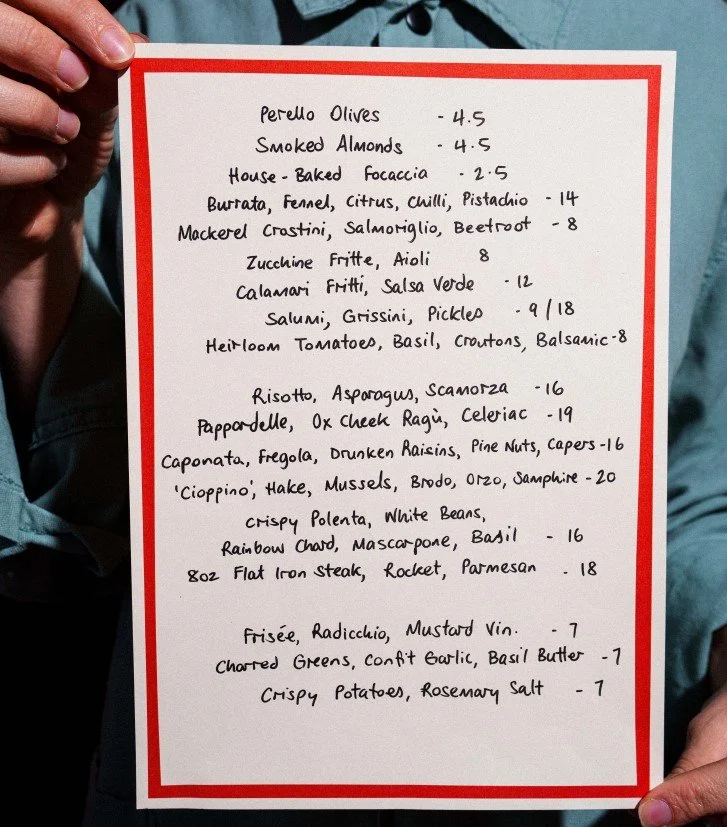 Perello Olives - 4.5
Smoked Almonds - 4.5
House-Baked Focaccia - 2.5
Burrata, Fennel, Citrus, Chilli, Pistachio - 14
Mackerel Crostini, Salmoriglio, Beetroot - 8
Zucchine Fritte, Aioli 8
Calamari Fritti, Salsa Verde - 12
Salumi, Grissini, Pickles - 9/18
Heirloom Tomatoes, Basil, Croutons, Balsamic - 8
Risotto, Asparagus, Scamorza - 16
Pappardelle, Ox Cheek Ragù, Celeriac - 19
Caponata, Fregola, Drunken Raisins, Pine Nuts, Capers - 16
'Cioppino', Hake, Mussels, Brodo, Orzo, Samphire - 20
Crispy Polenta, White Beans,
Rainbow Chard, Mascarpone, Basil - 16
8oz Flat Iron Steak, Rocket, Parmesan - 18
Frisée, Radicchio, Mustard Vin. - 7
Charred Greens, Confit Garlic, Basil Butter - 7
Crispy Potatoes, Rosemary Salt - 7